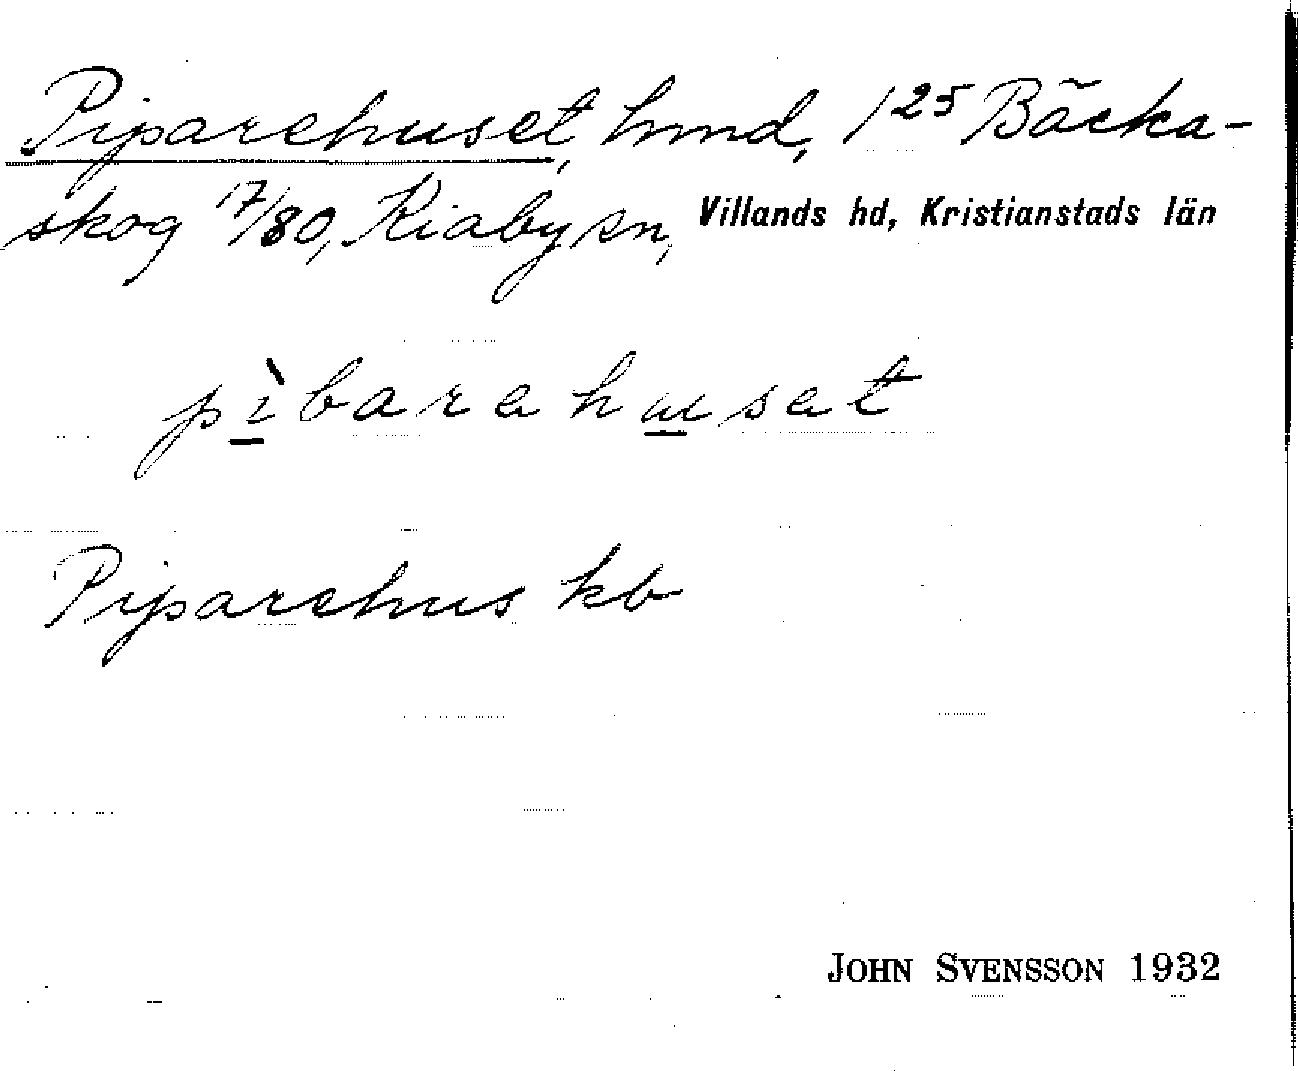 Piparehuset, hmd, 1²⁵ Bäcka-
skog 17/80, Kiaby sn, Villands hd, Kristianstads län
pìbarahusat
Piparehus kb
JOHN SVENSSON 1932